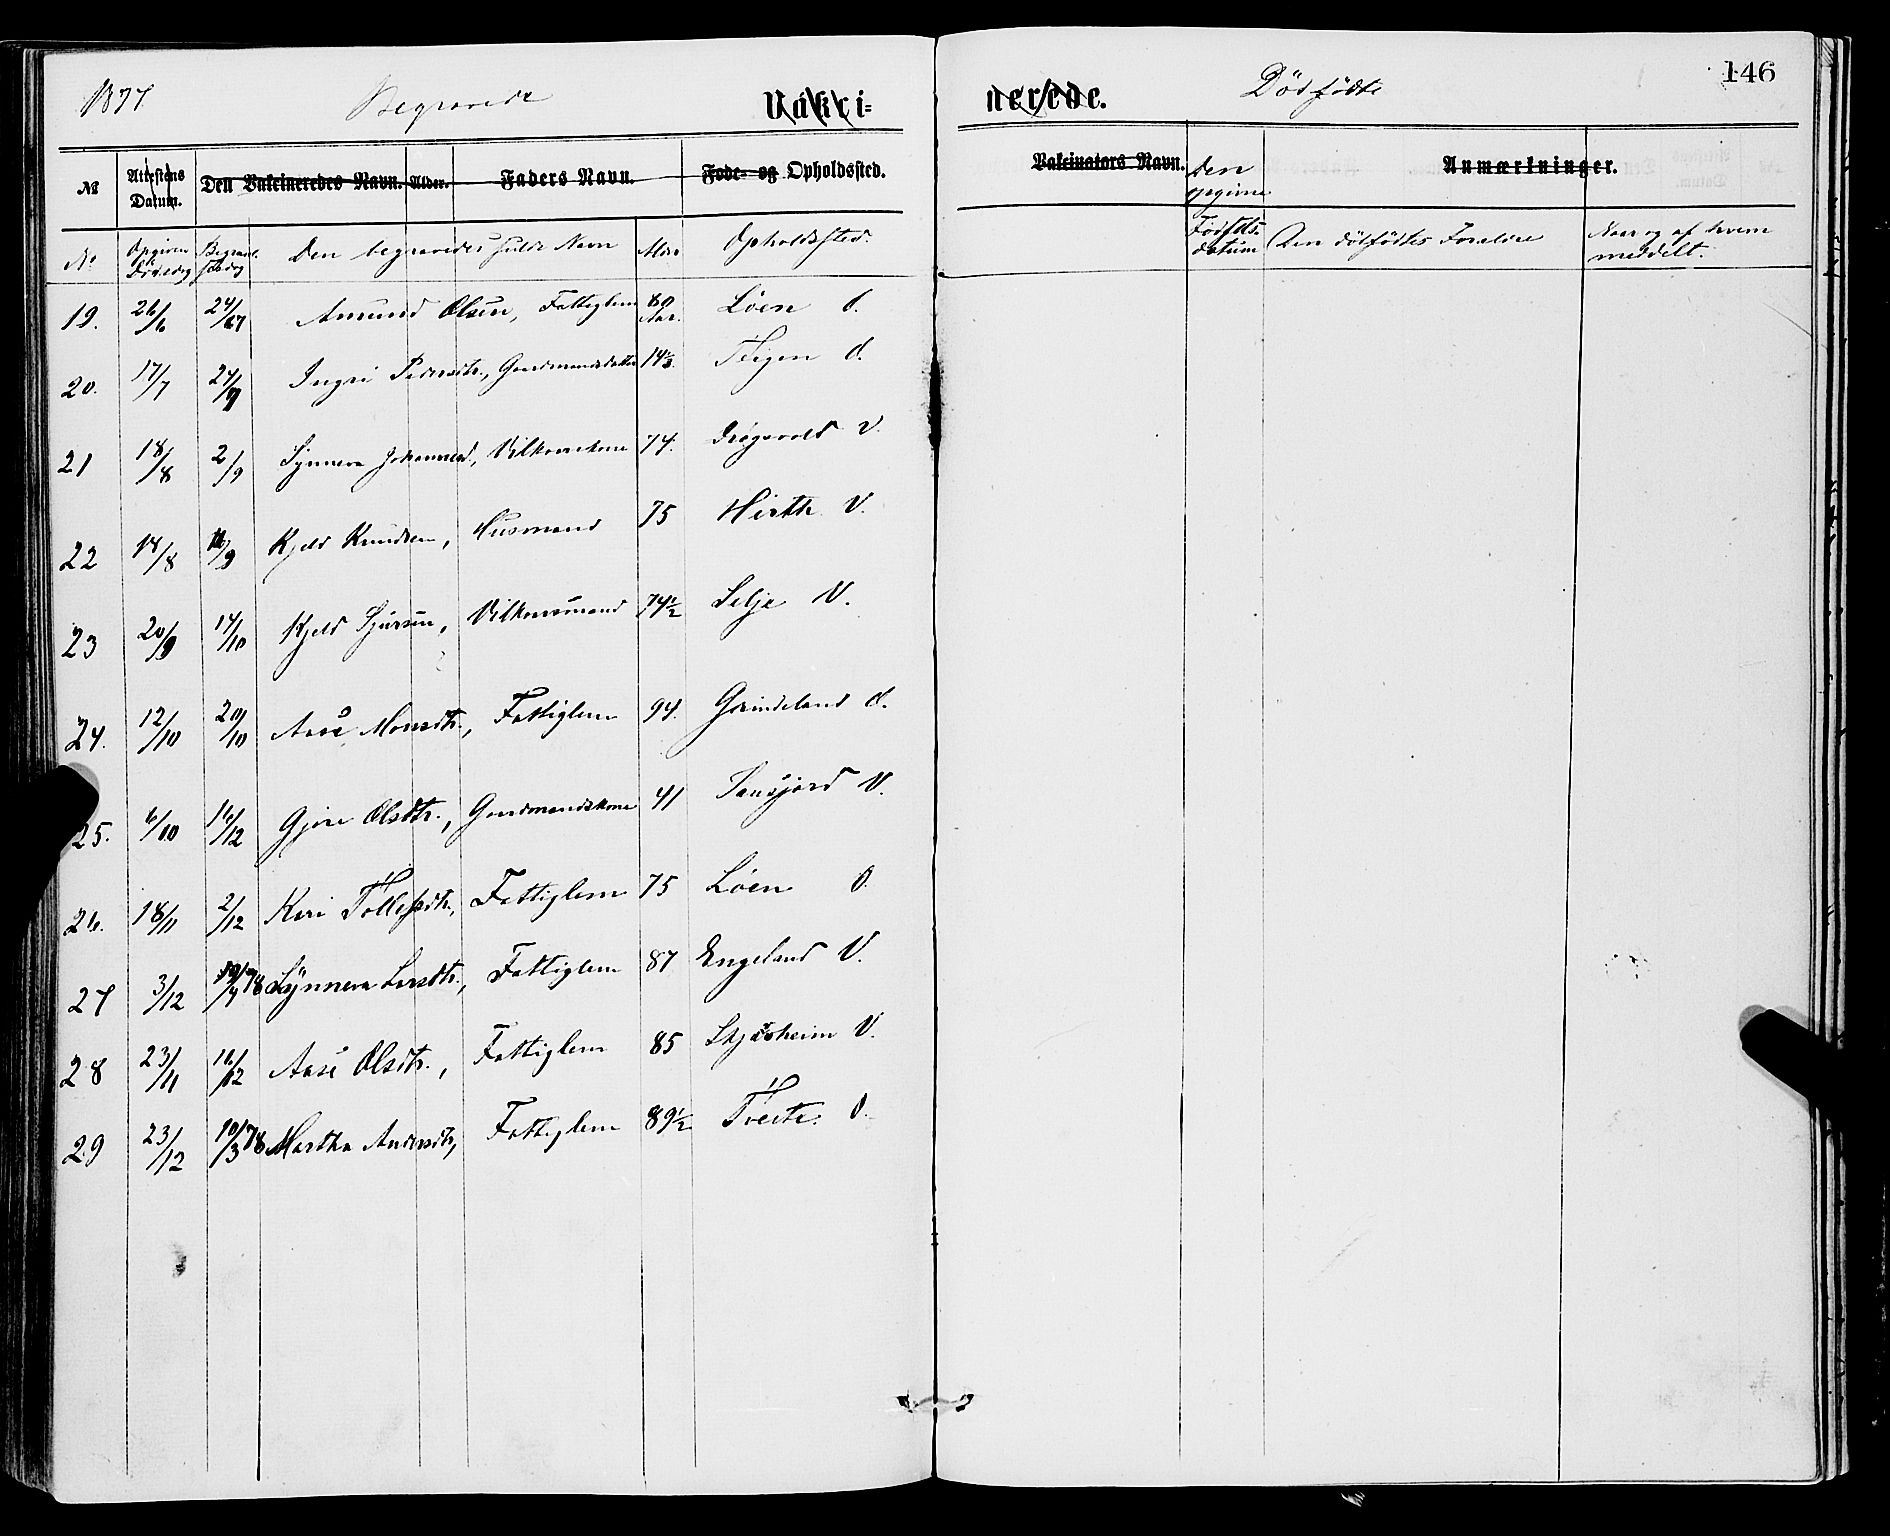 1877 Begravede Vakci= nerede. Dödfödte 146
№ Attestens Datum. Den Vakcineredes Navn. Alder. Faders Navn. Føde- og Opholdssted. Vakcinators Navn. Anmærkninger.
Den opgivne
No Opgiven Dödsdag Begravelsesdag Den begravedes fulde Navn Alder Opholdssted. Födselsdatum Den dödfödtes Forældre Naar og af hvem meddelt.
19. 26/6 Amund Olsen, Fattiglem 80 Aar. Löen
20. 17/7 Ingri Pedersdtr., Gaardmandsdatter 14½. Teigen
21 18/8 2/9 Synneva Johannesd., Vilkaarskone 74. V
22 18/8 Kjeld Knudsen, Husmand 75 Hirth V.
23 20/9 14/10 Kjeld Sjursen, Vilkaarsmand 74½ Selje V.
24. 12/10 20/10 Aase Monsdtr., Fattiglem 94. Grindeland
25. 6/10 16/12 Gjøre Olsdtr., Gaardmandskone 41 V.
26. 18/11 2/12 Kari Tollefsdtr., Fattiglem 75 Löen
27 3/12 78 Synneva Larsdtr., Fattiglem 87 Engeland V.
28 23/11 16/12 Aase Olsdtr., Fattiglem 85 Skjerheim V.
29 23/12 10/3 78 Martha Andersdtr, Fattiglem 89½ Tveite.